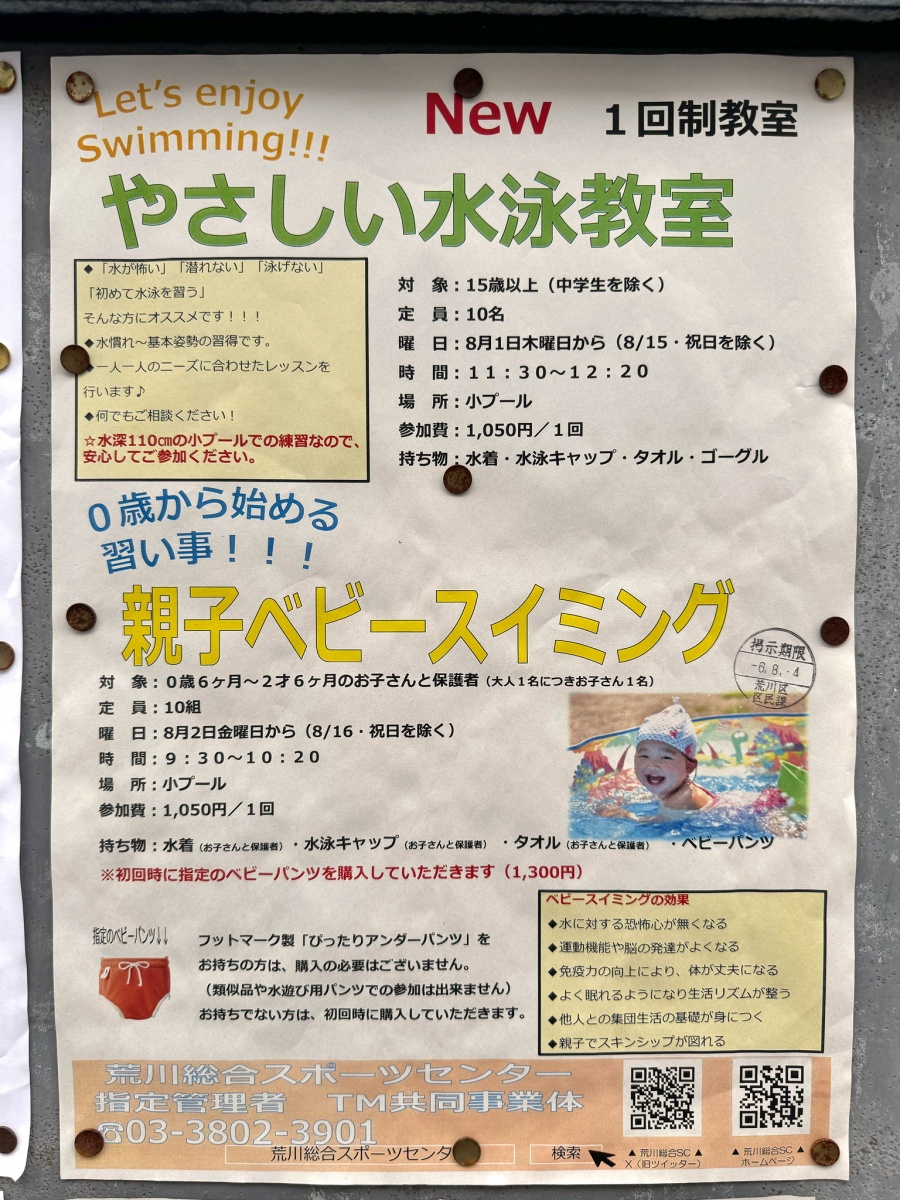 Let's enjoy
Swimming!!!
New １回制教室
やさしい水泳教室
◆「水が怖い」「潜れない」「泳げない」
「初めて水泳を習う」
そんな方にオススメです！！！
◆水慣れ～基本姿勢の習得です。
◆一人一人のニーズに合わせたレッスンを
行います♪
◆何でもご相談ください！
☆水深110㎝の小プールでの練習なので、
安心してご参加ください。
対　象：15歳以上（中学生を除く）
定　員：10名
曜　日：8月1日木曜日から（8/15・祝日を除く）
時　間：１１：３０～１２：２０
場　所：小プール
参加費：1,050円／１回
持ち物：水着・水泳キャップ・タオル・ゴーグル
０歳から始める
習い事！！！
親子ベビースイミング
掲示期限
-6.8.-4
荒川区
区民課
対　象：０歳６ヶ月～２才６ヶ月のお子さんと保護者（大人１名につきお子さん１名）
定　員：10組
曜　日：8月2日金曜日から（8/16・祝日を除く）
時　間：９：３０～１０：２０
場　所：小プール
参加費：1,050円／１回
持ち物：水着（お子さんと保護者）・水泳キャップ（お子さんと保護者）・タオル（お子さんと保護者）・ベビーパンツ
※初回時に指定のベビーパンツを購入していただきます（1,300円）
指定のベビーパンツ↓↓
フットマーク製「ぴったりアンダーパンツ」を
お持ちの方は、購入の必要はございません。
（類似品や水遊び用パンツでの参加は出来ません）
お持ちでない方は、初回時に購入していただきます。
ベビースイミングの効果
◆水に対する恐怖心が無くなる
◆運動機能や脳の発達がよくなる
◆免疫力の向上により、体が丈夫になる
◆よく眠れるようになり生活リズムが整う
◆他人との集団生活の基礎が身につく
◆親子でスキンシップが図れる
荒川総合スポーツセンター
指定管理者　TM共同事業体
☎03-3802-3901
荒川総合スポーツセンタ
検索
▲ 荒川総合SC ▲
X（旧ツイッター）
▲ 荒川総合SC ▲
ホームページ